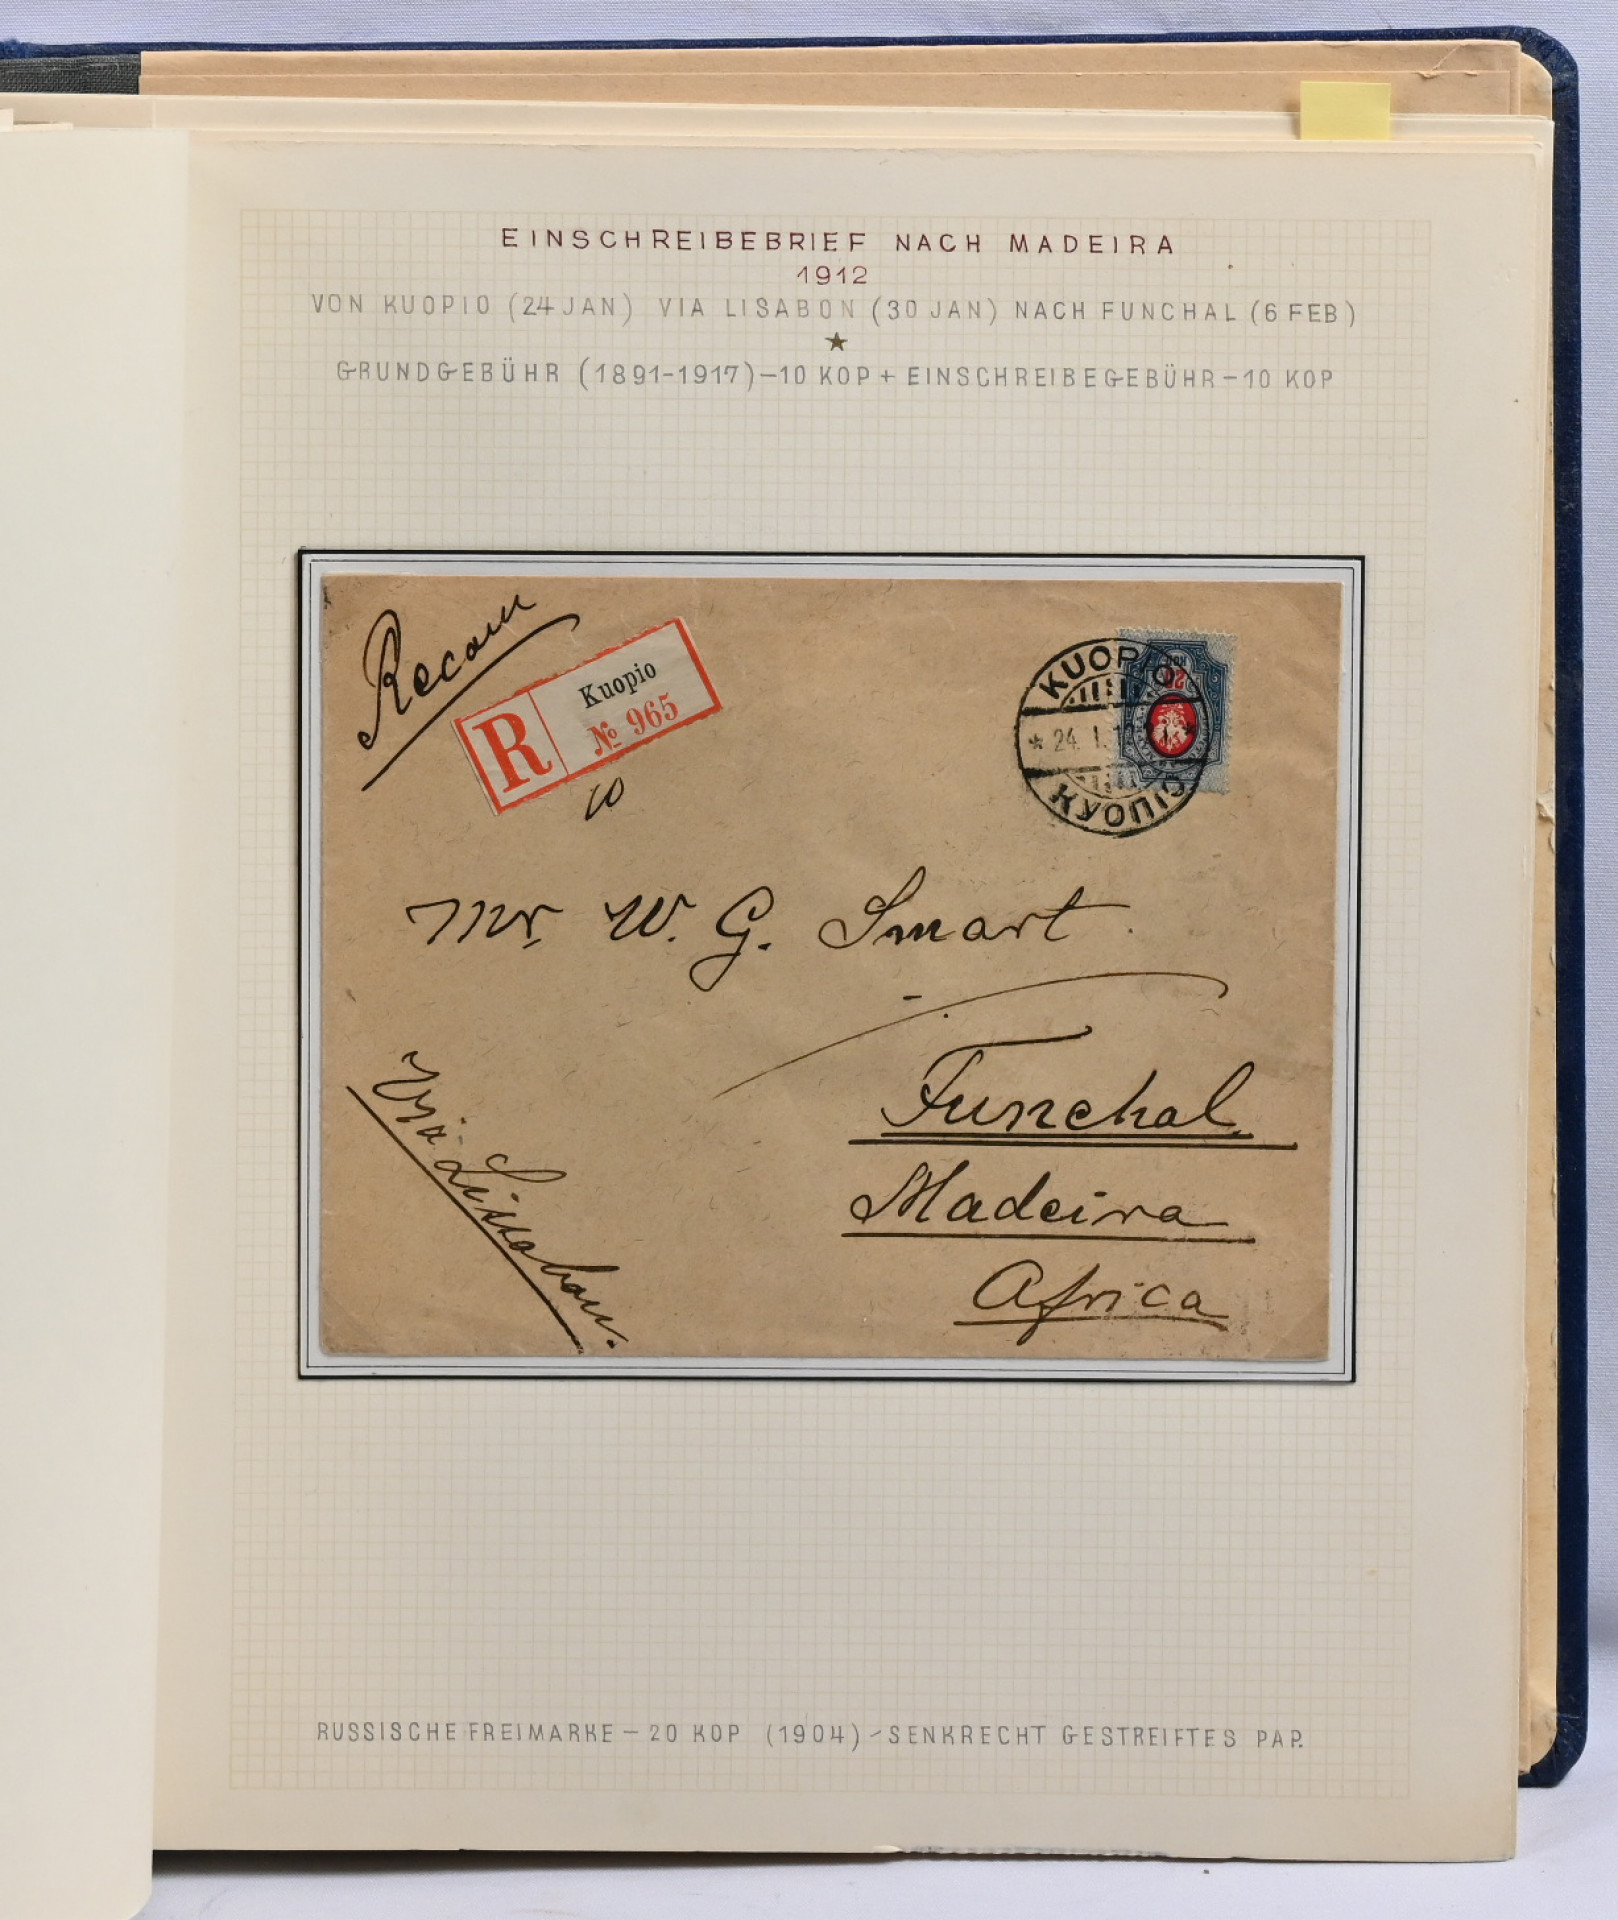 EINSCHREIBEBRIEF NACH MADEIRA
1912
VON KUOPIO (24 JAN) VIA LISABON (30 JAN) NACH FUNCHAL (6 FEB)
GRUNDGEBÜHR (1891-1917)-10 KOP + EINSCHREIBEGEBÜHR-10 KOP
Recom
R
Kuopio
№ 965
10
KUOPIO
24. I. 12
КУОПIО
20
КОП
Mr. W. G. Smart.
Funchal.
Madeira
Africa
Via Lissabon.
RUSSISCHE FREIMARKE - 20 KOP (1904) - SENKRECHT GESTREIFTES PAP.